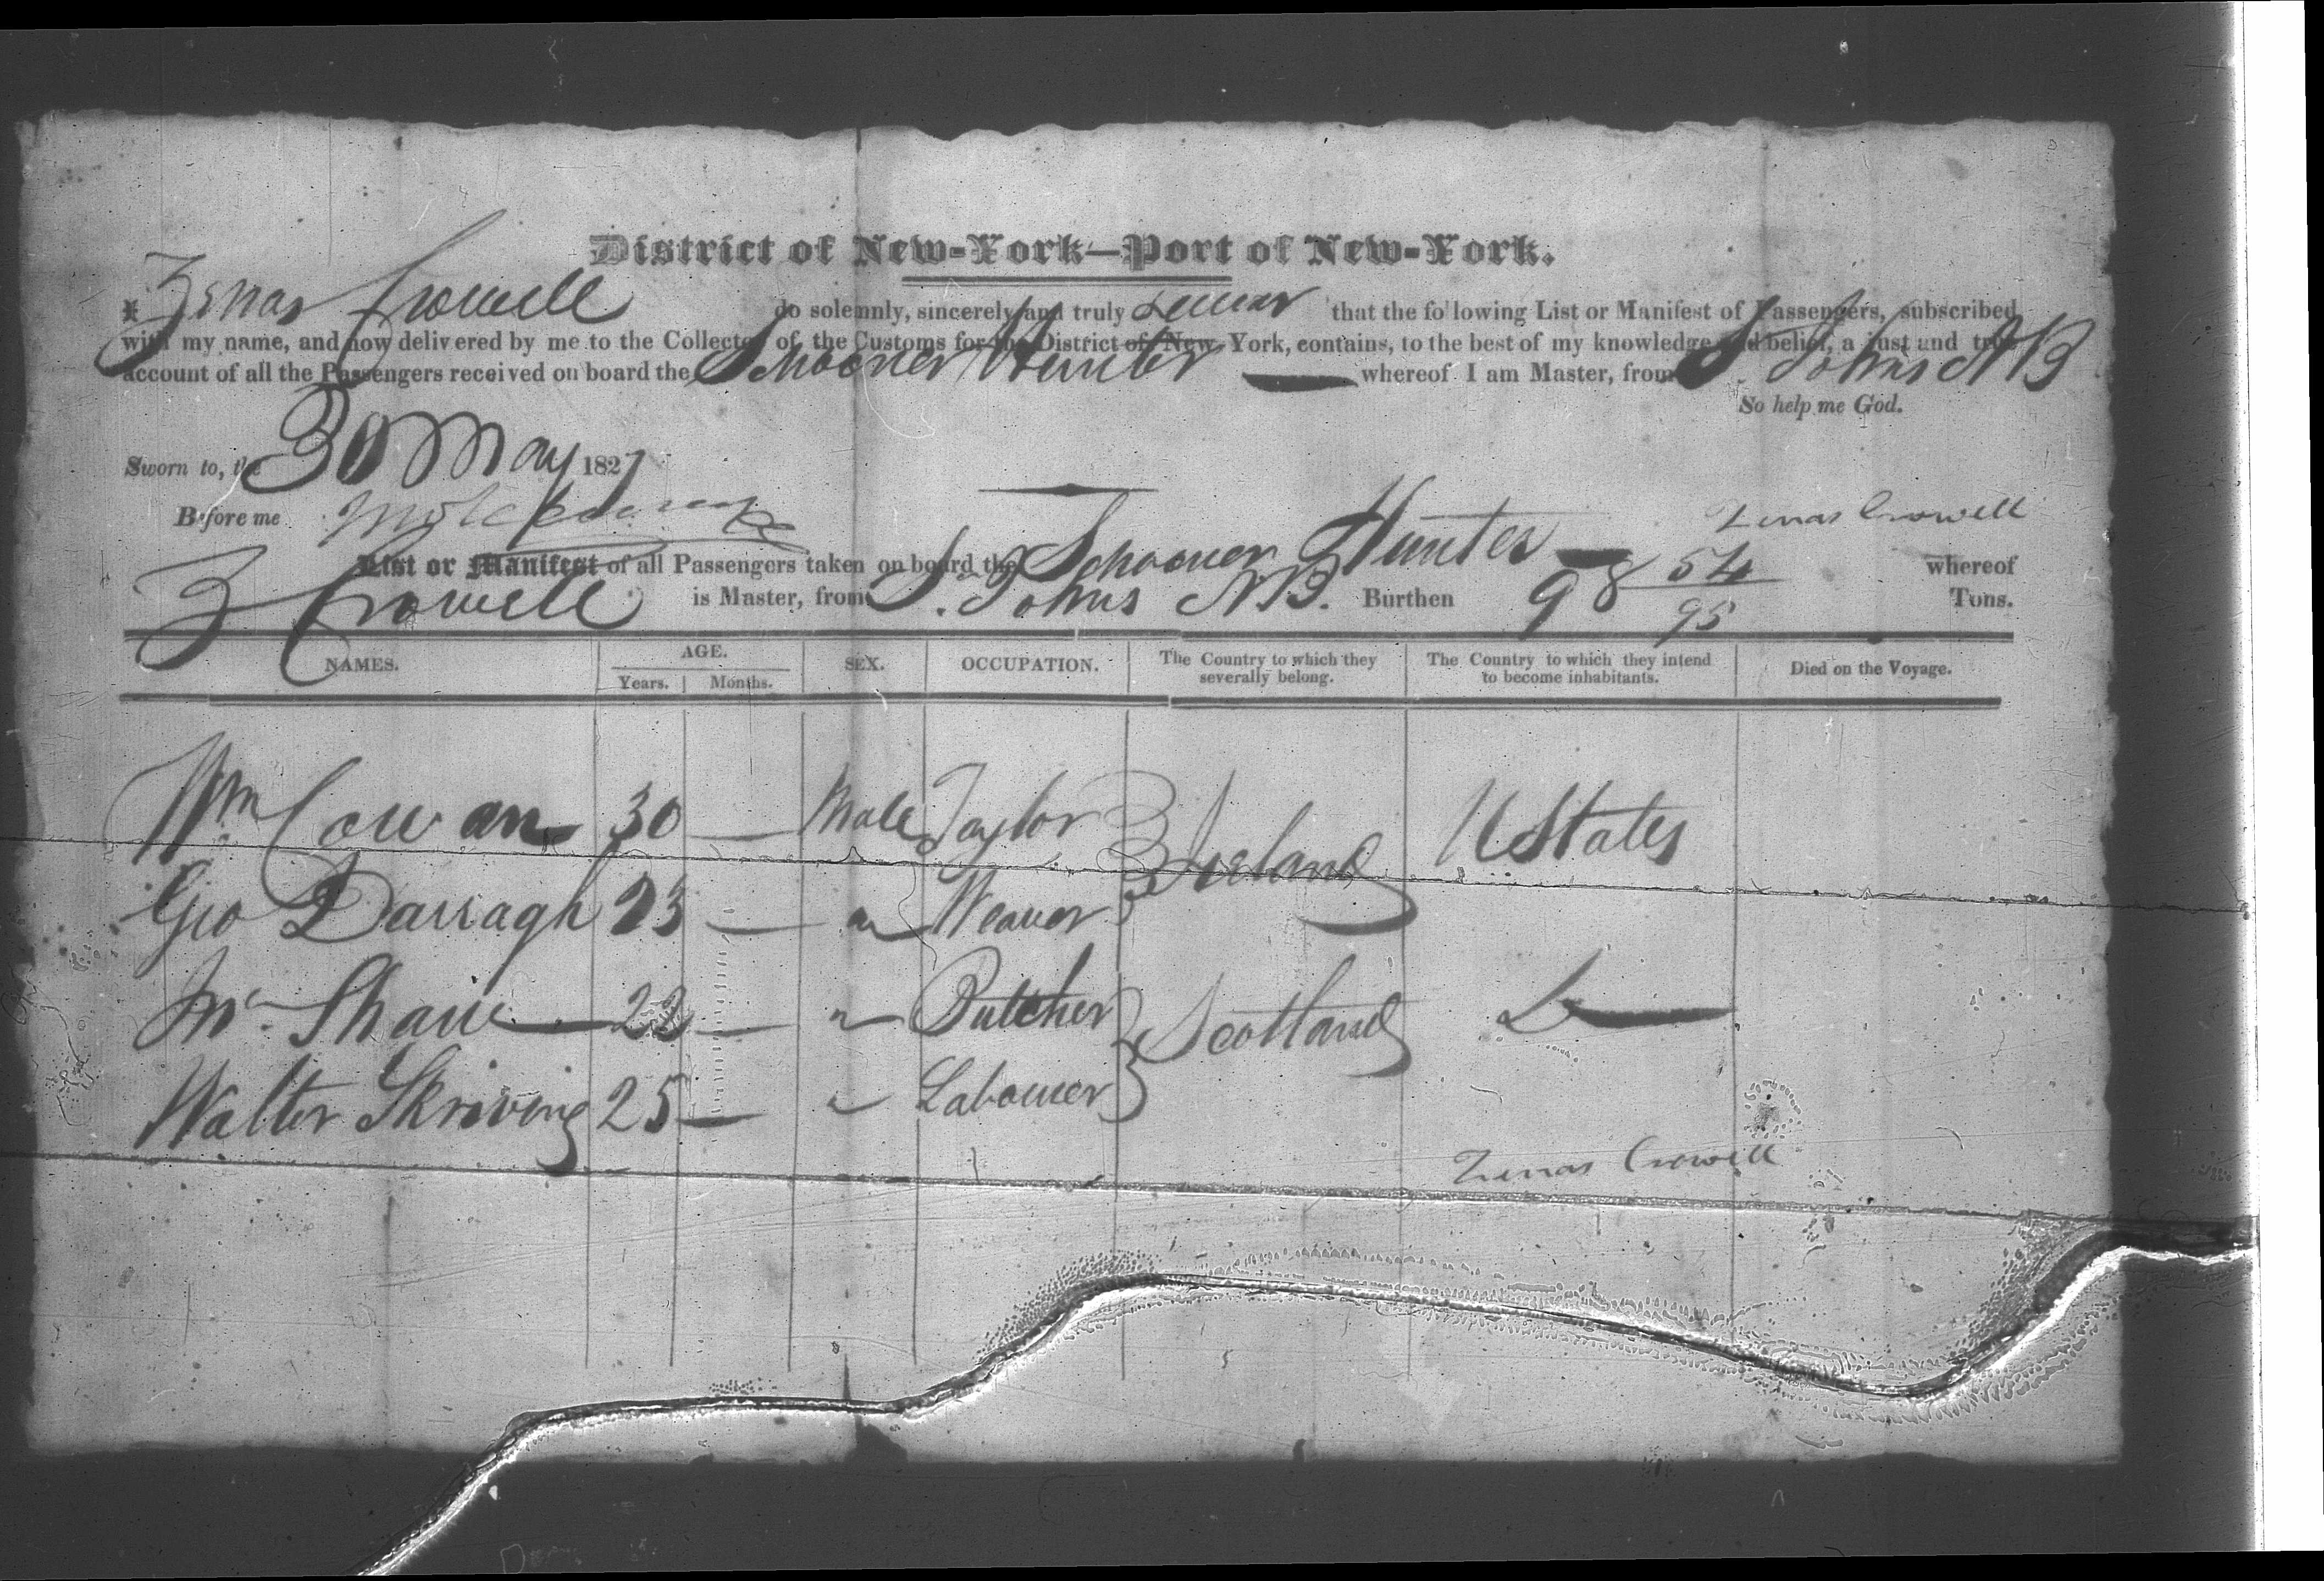 District of New-York—Port of New-York.
I Zenas Crowell do solemnly, sincerely and truly swear that the following List or Manifest of Passengers, subscribed
with my name, and now delivered by me to the Collector of the Customs for the District of New-York, contains, to the best of my knowledge and belief, a just and true
account of all the Passengers received on board the Schooner Hunter — whereof I am Master, from St. Johns NB
So help me God.
Sworn to, the 30 May 1827
Before me
Zenas Crowell
List or Manifest of all Passengers taken on board the Schooner Hunter — whereof
Z Crowell is Master, from St. Johns NB. Burthen 98 54/95 Tons.
NAMES. AGE. SEX. OCCUPATION. The Country to which they severally belong. The Country to which they intend to become inhabitants. Died on the Voyage.
Years. Months.
Wm Cowan 30 — Male Taylor } Ireland U States
Geo Darragh 23 — " Weaver
Jno Shaw — 22 — " Butcher } Scotland D—
Walter Skriving 25 — " Labourer
Zenas Crowell